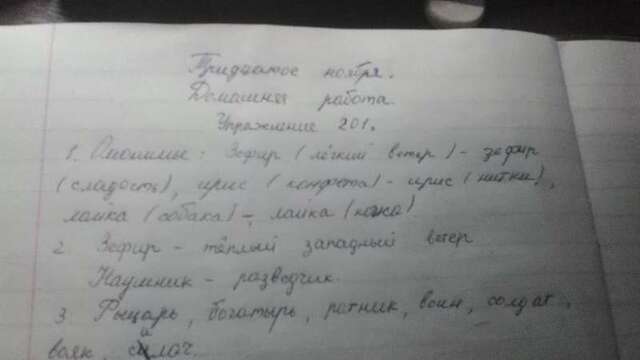 Тридцатое ноября.
Домашняя работа.
Упражнение 201.
1. Омонимы: Зефир (лёгкий ветер) - зефир
(сладость), ирис (конфета) - ирис (нитки),
лайка (собака) - лайка (кожа)
2. Зефир - тёплый западный ветер
Наумник - разведчик.
3. Рыцарь, богатырь, ратник, воин, солдат,
вояк, силач.